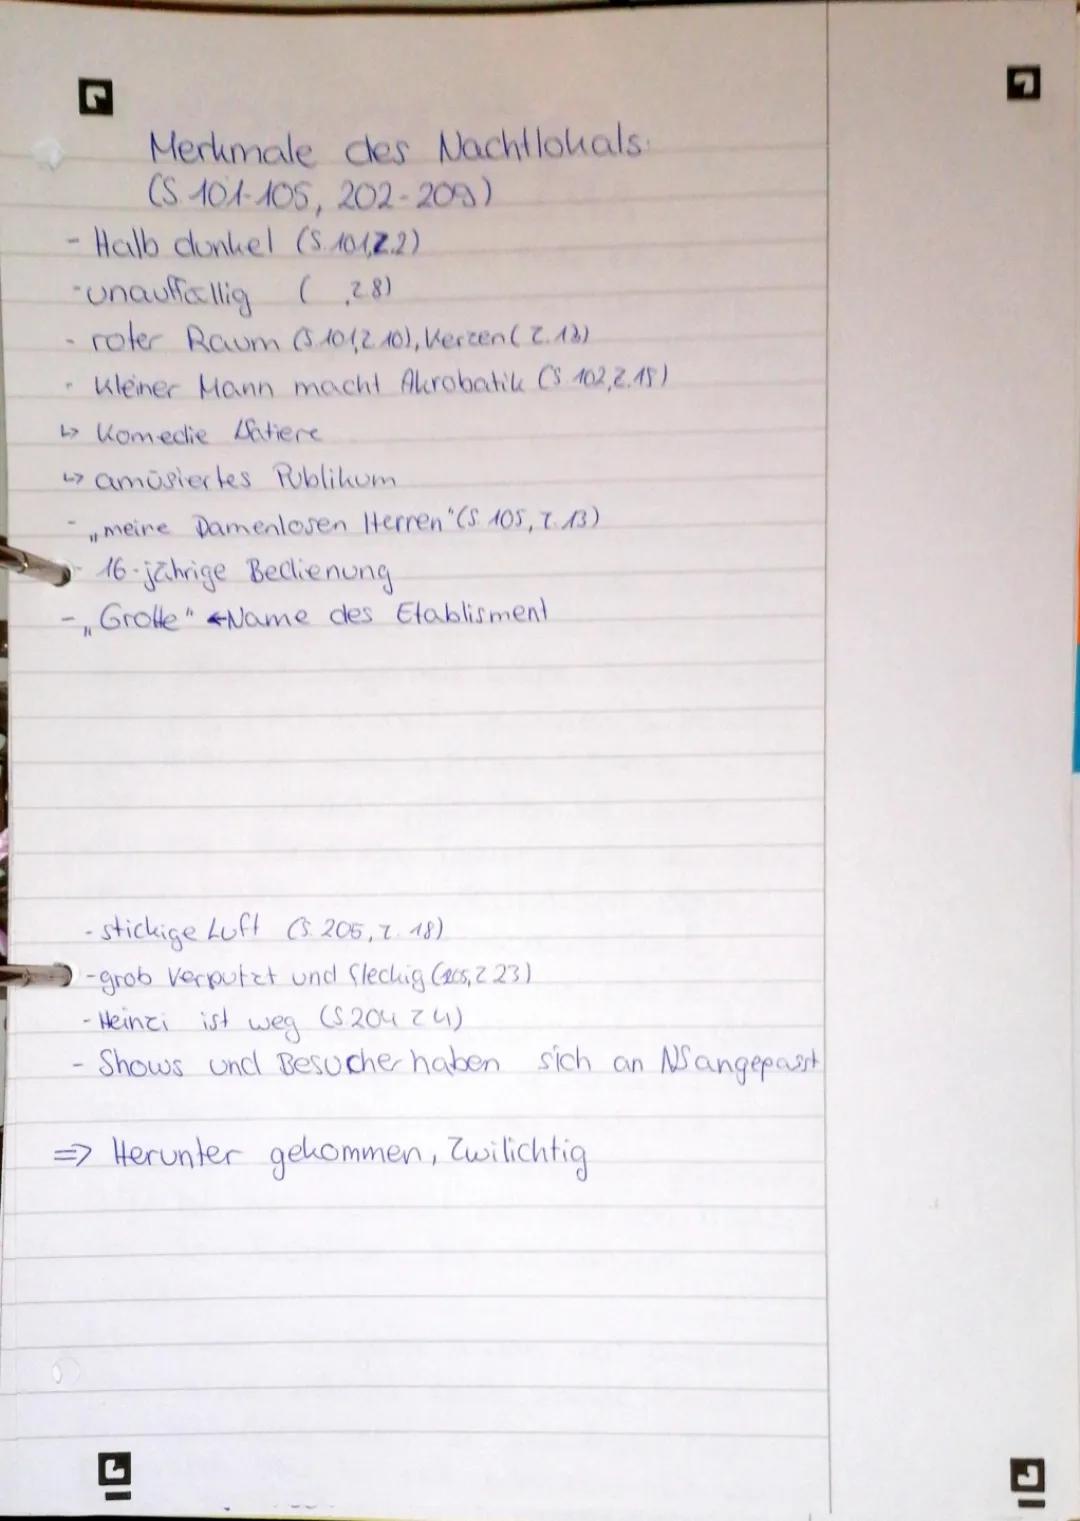 Merkmale des Nachtlokals:
(S. 101-105, 202-209)
- Halb dunkel (S. 101, Z.2)
- unauffällig ( , Z.8)
- roter Raum (S.101, Z.10), Kerzen (Z.13)
- Kleiner Mann macht Akrobatik (S. 102, Z.18)
↳ Komedie Satiere
↳ amüsiertes Publikum
- „meine Damenlosen Herren" (S. 105, Z. 13)
- 16-jährige Bedienung
- „Grotte" ← Name des Etablisment
- stickige Luft (S. 205, Z. 18)
- grob verputzt und fleckig (205, Z 23)
- Heinzi ist weg (S.204 Z 4)
- Shows und Besucher haben sich an NS angepasst
=> Herunter gekommen, Zwilichtig